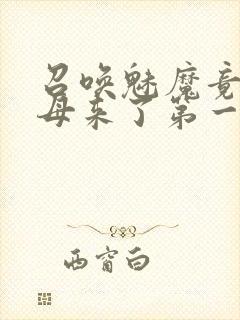 召唤魅魔竟
母来了第一
西窗白